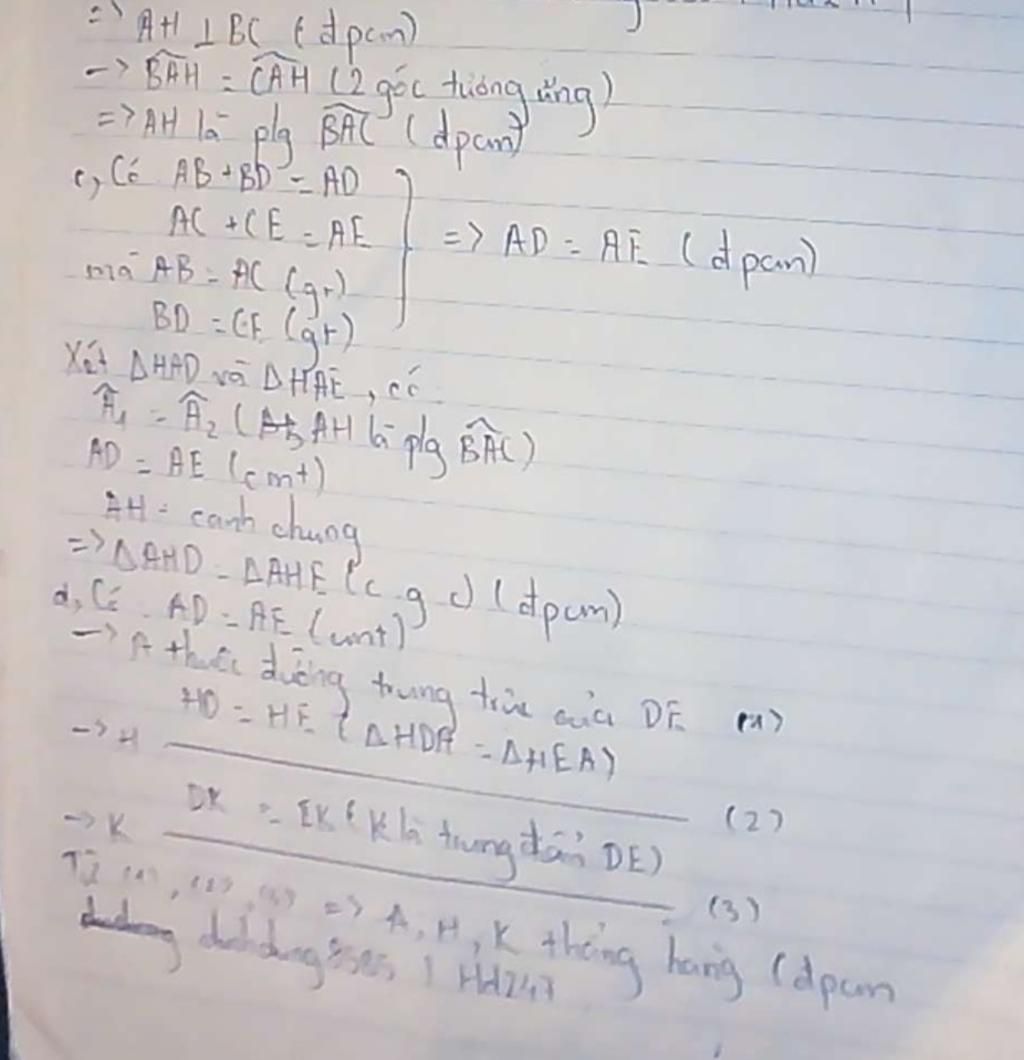 => AH ⊥ BC (đpcm)
-> BAH = CAH (2 góc tương ứng)
=> AH là plg BAC (đpcm)
c, Có AB + BD = AD
AC + CE = AE
mà AB = AC (gt)
BD = CE (gt)
=> AD = AE (đpcm)
Xét ΔHAD và ΔHAE, có
Â1 = Â2 (AH là plg BAC)
AD = AE (cmt)
AH = canh chung
=> ΔAHD = ΔAHE (c g c) (đpcm)
d, Có AD = AE (cmt)
-> A thuộc đường trung trực của DE (1)
HD = HE (ΔHDA = ΔHEA)
-> H ——— (2)
DK = EK (K là trung điểm DE)
-> K ——— (3)
Từ (1), (2), (3) => A, H, K thẳng hàng (đpcm